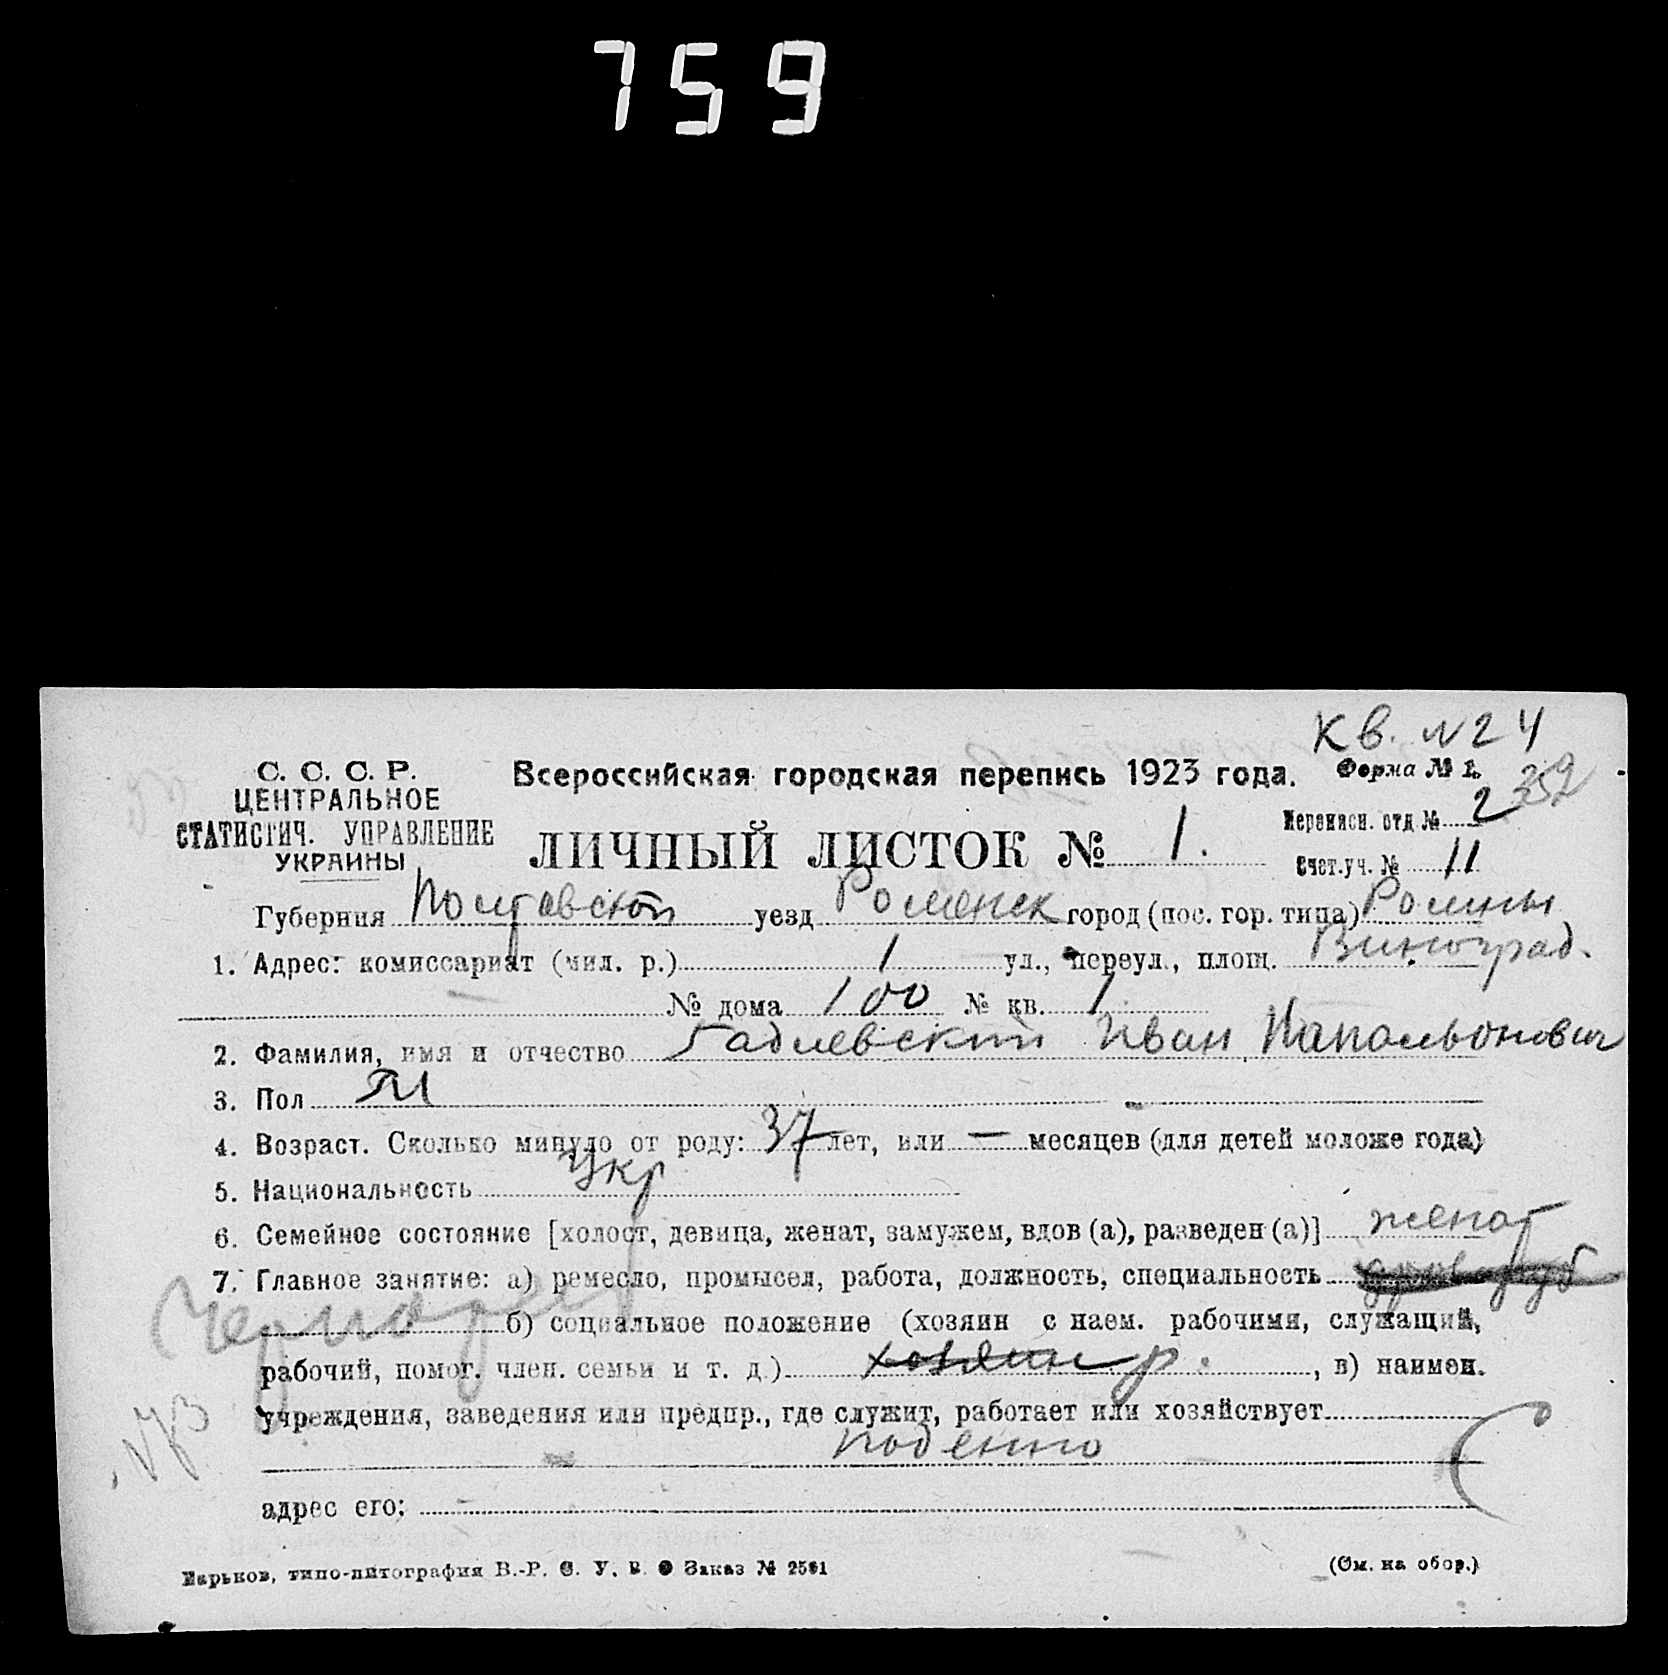 759
Кв. N24
С. С. С. Р.
ЦЕНТРАЛЬНОЕ
СТАТИСТИЧ. УПРАВЛЕНИЕ
УКРАИНЫ
Всероссийская городская перепись 1923 года.
Форма № 1.
352
ЛИЧНЫЙ ЛИСТОК № 1.
Переписн. отд № 2
Счет.уч. № 11
Губерния Полтавской уезд Роменск город (пос. гор. типа) Ромны
1. Адрес: комиссариат (мил. р.) 1 ул., переул., площ. Виноград.
№ дома 100 № кв. 1
2. Фамилия, имя и отчество Гадлевский Иван Напольонович
3. Пол М
4. Возраст. Сколько минуло от роду: 37 лет, или — месяцев (для детей моложе года)
5. Национальность Укр
6. Семейное состояние [холост, девица, женат, замужем, вдов (а), разведен (а)] женат
7. Главное занятие: а) ремесло, промысел, работа, должность, специальность
Чернораб б) социальное положение (хозяин с наем. рабочими, служащий,
рабочий, помог. член. семьи и т. д.) хозяин р. , в) наимен.
учреждения, заведения или предпр., где служит, работает или хозяйствует
поденно
адрес его:
Харьков, типо-литография В.-Р. С. У. В. О Заказ № 2561
(См. на обор.)